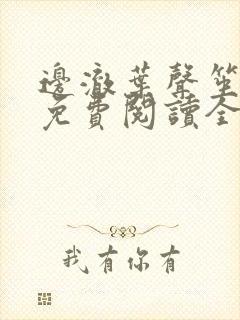 邊澈葉聲笙
免費閱讀全
我有你有